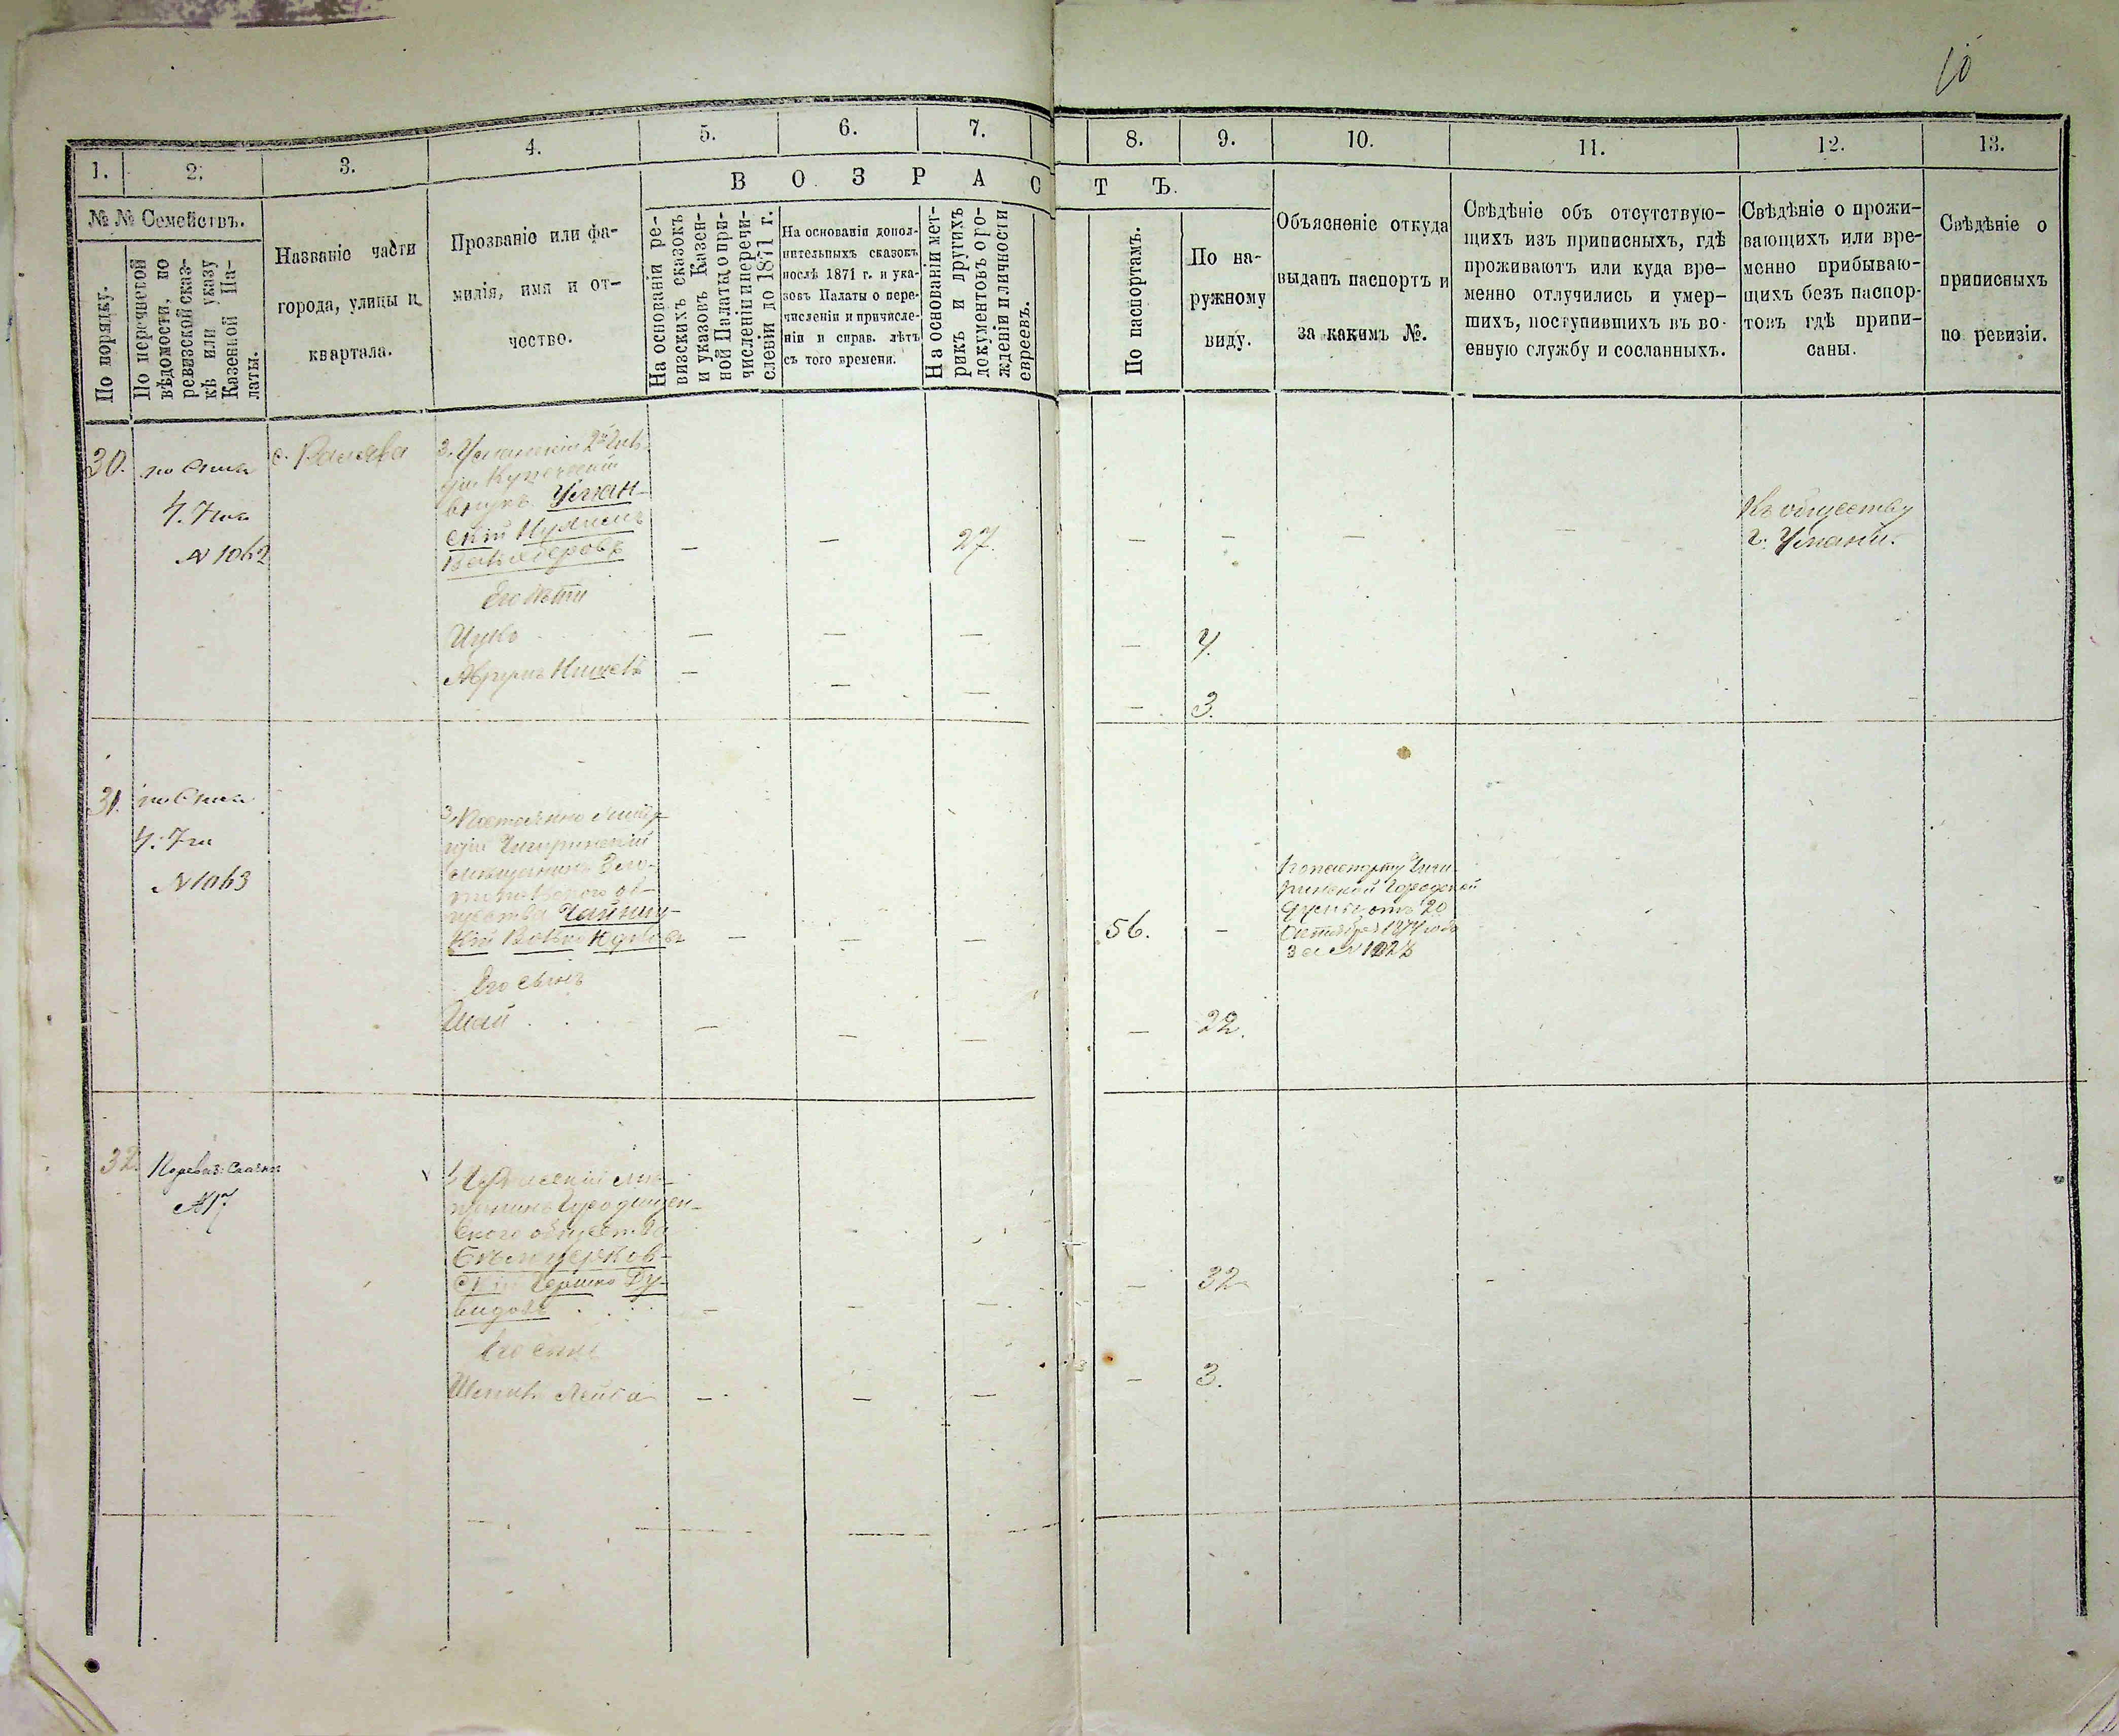 10
1.
2.
3.
4.
5.
6.
7.
8.
9.
10.
11.
12.
13.
№ № Семействъ.
По порядку.
По перечневой
вѣдомости, по
ревизской сказ-
кѣ или указу
Казенной Па-
латы.
Названіе части
города, улицы и
квартала.
Прозваніе или фа-
милія, имя и от-
чество.
ВОЗРАСТЪ.
На основаніи ре-
визскихъ сказокъ
и указовъ Казен-
ной Палаты о при-
численіи и перечи-
сленіи до 1871 г.
На основаніи допол-
нительныхъ сказокъ
послѣ 1871 г. и ука-
зовъ Палаты о пере-
численіи и причисле-
ніи и справ. лѣтъ
съ того времени.
На основаніи мет-
рикъ и другихъ
документовъ о ро-
жденіи и личности
евреевъ.
По паспортамъ.
По на-
ружному
виду.
Объясненіе откуда
выданъ паспортъ и
за какимъ №.
Свѣдѣніе объ отсутствую-
щихъ изъ приписныхъ, гдѣ
проживаютъ или куда вре-
менно отлучились и умер-
шихъ, поступившихъ въ во-
енную службу и сосланныхъ.
Свѣдѣніе о прожи-
вающихъ или вре-
менно прибываю-
щихъ безъ паспор-
товъ гдѣ припи-
саны.
Свѣдѣніе о
приписныхъ
по ревизіи.
30.
№ 1062
с.
Уманскій 2й
Купеческій
внукъ Уман-
скій
Его дѣти
Ицко
Аврумъ
27.
4.
3.
Къ обществу
г. Умани.
31.
№ 1063
Чигиринскій
мѣщанинъ Зло-
топольского об-
щества
кій Волько
Его сынъ
Шай
56.
22.
По паспорту Чиги-
ринской Городской
Думы отъ 20
Октября 1874 года
за №
32.
№ 17
щанинъ Городищен-
ского общества
скій Гершко Ду-
видовъ
Его сынъ
Лейба
32
3.